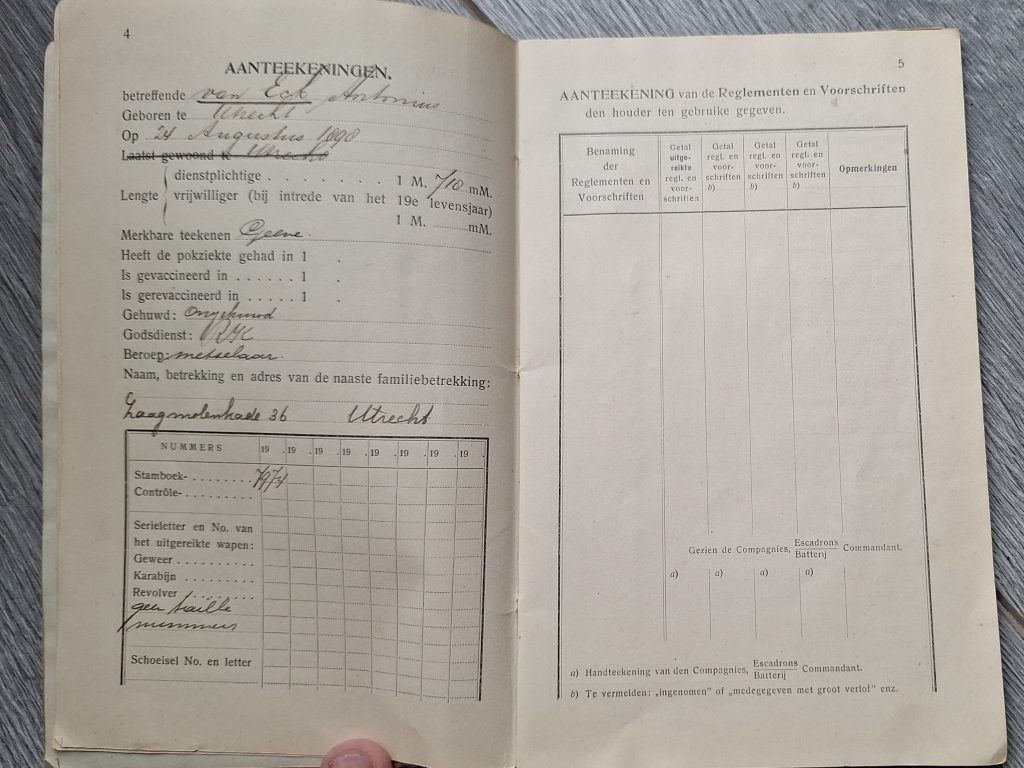 4
AANTEEKENINGEN.
betreffende van Eck Antonius
Geboren te Utrecht
Op 24 Augustus 1898
Laatst gewoond te Utrecht
dienstplichtige . . . . . . . . 1 M. 710 mM.
Lengte vrijwilliger (bij intrede van het 19e levensjaar)
1 M. mM.
Merkbare teekenen Geene.
Heeft de pokziekte gehad in 1 .
Is gevaccineerd in . . . . . . 1 .
Is gerevaccineerd in . . . . . 1 .
Gehuwd: ongehuwd
Godsdienst: RK
Beroep: metselaar.
Naam, betrekking en adres van de naaste familiebetrekking:
Zaagmolenkade 36 Utrecht
NUMMERS 19 . 19 . 19 . 19 . 19 . 19 . 19 . 19 .
Stamboek- . . . . . . . .
Contrôle- . . . . . . . . .
Serieletter en No. van
het uitgereikte wapen:
Geweer . . . . . . . . . .
Karabijn . . . . . . . . .
Revolver . . . . . . . . .
geen taille
nummers
Schoeisel No. en letter
5
AANTEEKENING van de Reglementen en Voorschriften
den houder ten gebruike gegeven.
Benaming
der
Reglementen en
Voorschriften
Getal
uitge-
reikte
regl. en
voor-
schriften
Getal
regl. en
voor-
schriften
b)
Getal
regl. en
voor-
schriften
b)
Getal
regl. en
voor-
schriften
b)
Opmerkingen
Gezien de Compagnies, Escadrons Batterij Commandant.
a) a) a) a)
a) Handteekening van den Compagnies, Escadrons Batterij Commandant.
b) Te vermelden: „ingenomen" of „medegegeven met groot verlof" enz.